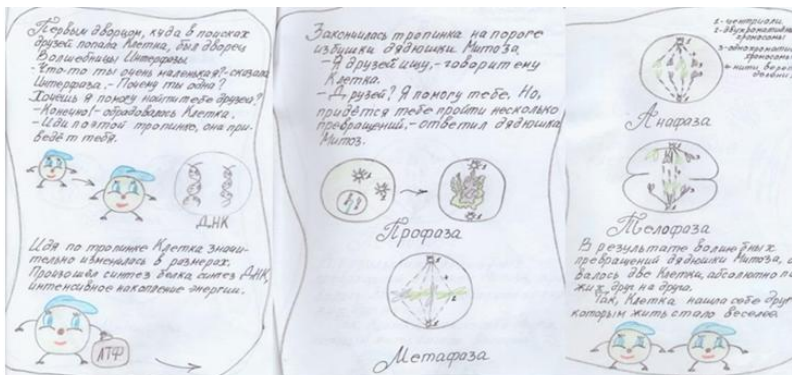 Первым дворцом, куда в поисках
друзей попала Клетка, был дворец
Волшебницы Интерфазы.
- Что-то ты очень маленькая? - сказала
Интерфаза, - Почему ты одна?
Хочешь я помогу найти тебе друзей?
- Конечно! - обрадовалась Клетка.
- Иди по этой тропинке, она при-
ведёт тебя.
ДНК
Идя по тропинке Клетка значи-
тельно изменилась в размерах.
Произошёл синтез белка, синтез ДНК,
интенсивное накопление энергии.
АТФ
Закончилась тропинка на пороге
избушки дядюшки Митоза.
- Я друзей ищу, - говорит ему
Клетка.
- Друзей? Я помогу тебе. Но,
придётся тебе пройти несколько
превращений, - ответил дядюшка
Митоз.
Профаза
Метафаза
1 - центриоли
Анафаза
Телофаза
В результате волшебных
превращений дядюшки Митоза,
валось две Клетки, абсолютно по
жих друг на друга.
Так, Клетка нашла себе друг
которым жить стало веселее.